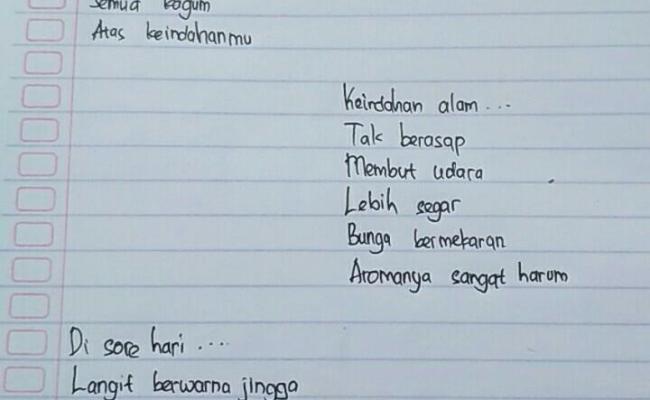 Semua kagum
Atas keindahanmu
Keirddhan alam ...
Tak berasap
Membut udara
Lebih segar
Bunga bermekaran
Aromanya sangat harum
Di sore hari ....
Langit berwarna jingga